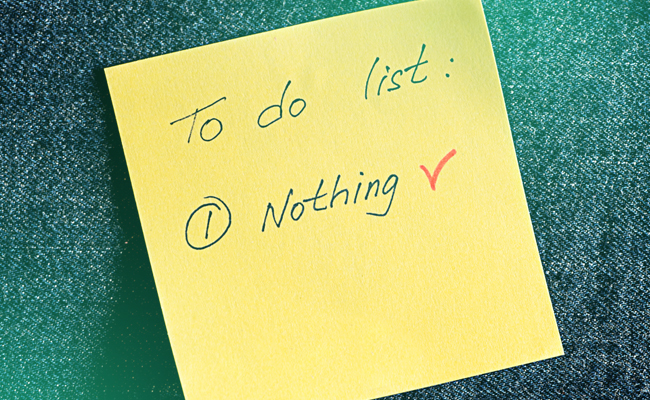 To do list:
① Nothing ✓